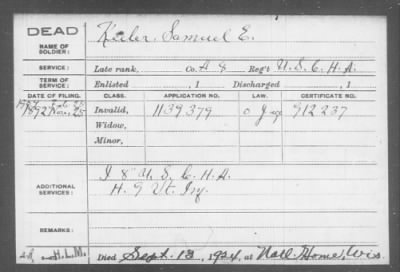 DEAD
NAME OF SOLDIER:
Samuel E.
SERVICE:
Late rank, Co. A & Reg't U.S.C.H.A.
TERM OF SERVICE:
Enlisted , 1 Discharged , 1
DATE OF FILING. CLASS. APPLICATION NO. LAW. CERTIFICATE NO.
Invalid, 1139379 912237
Widow,
Minor,
ADDITIONAL SERVICES:
I 8" U.S.C.H.A.
H. 9 Vt. Inf.
REMARKS:
H.L.M. Died Sept. 13, 1924, at Natl. Home, Wis.